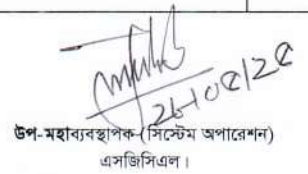 ২৮/০৫/২৫
উপ-মহাব্যবস্থাপক (সিস্টেম অপারেশন)
এসজিসিএল।